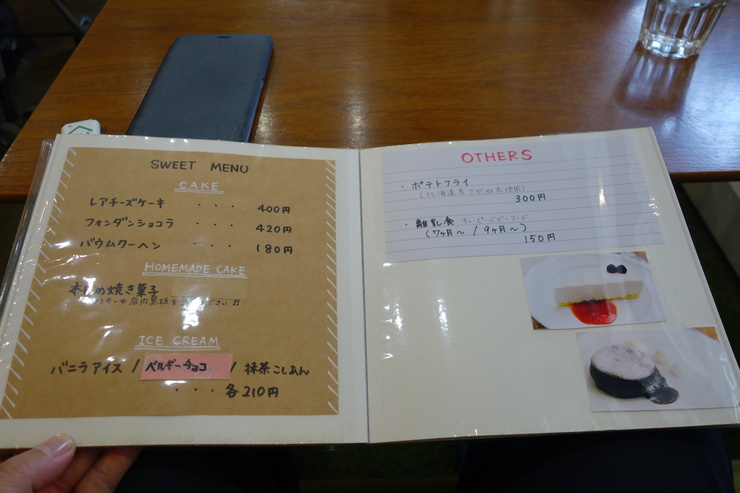 SWEET MENU
CAKE
レアチーズケーキ ・・・ 400円
フォンダンショコラ ・・・ 420円
バウムクーヘン ・・・ 180円
HOMEMADE CAKE
焼き菓子
ICE CREAM
バニラアイス / ベルギーチョコ / 抹茶こしあん
・・・ 各210円
OTHERS
・ポテトフライ
300円
・離乳食 キューピーベビーフード
(7ヶ月〜 / 9ヶ月〜)
150円